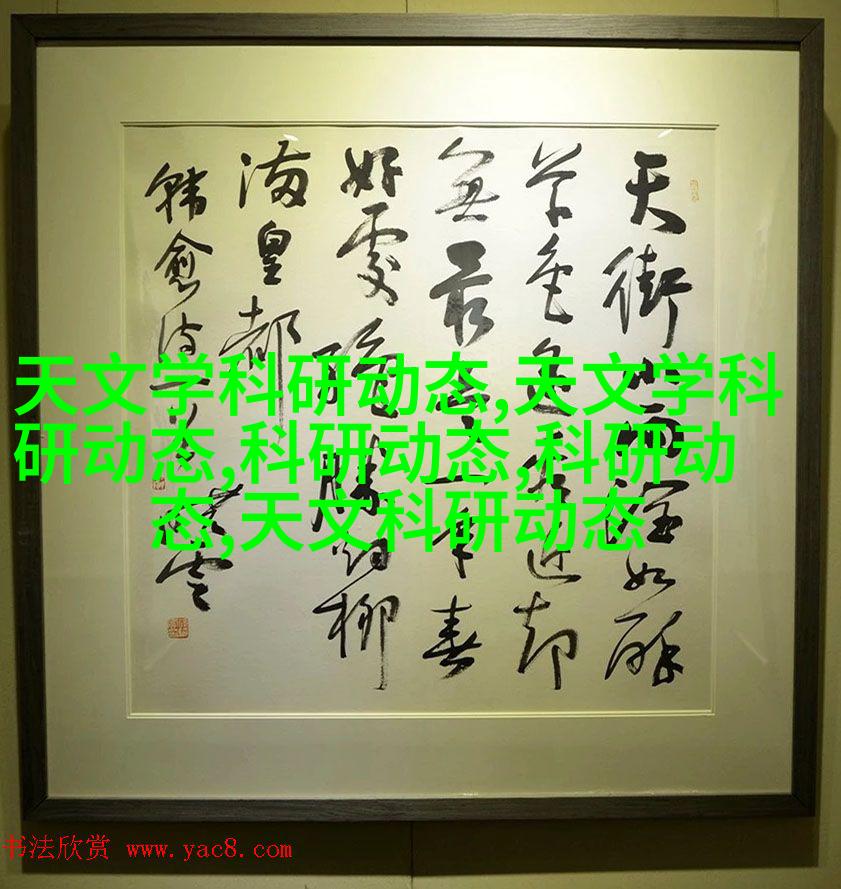 天街小雨润如酥
草色遥看近却
无最是一年春
好处绝胜烟柳
满皇都
韩愈诗一首
天文学科研动态,天文学科
研动态,科研动态,科研动
态,天文科研动态
书法欣赏 www.yac8.com